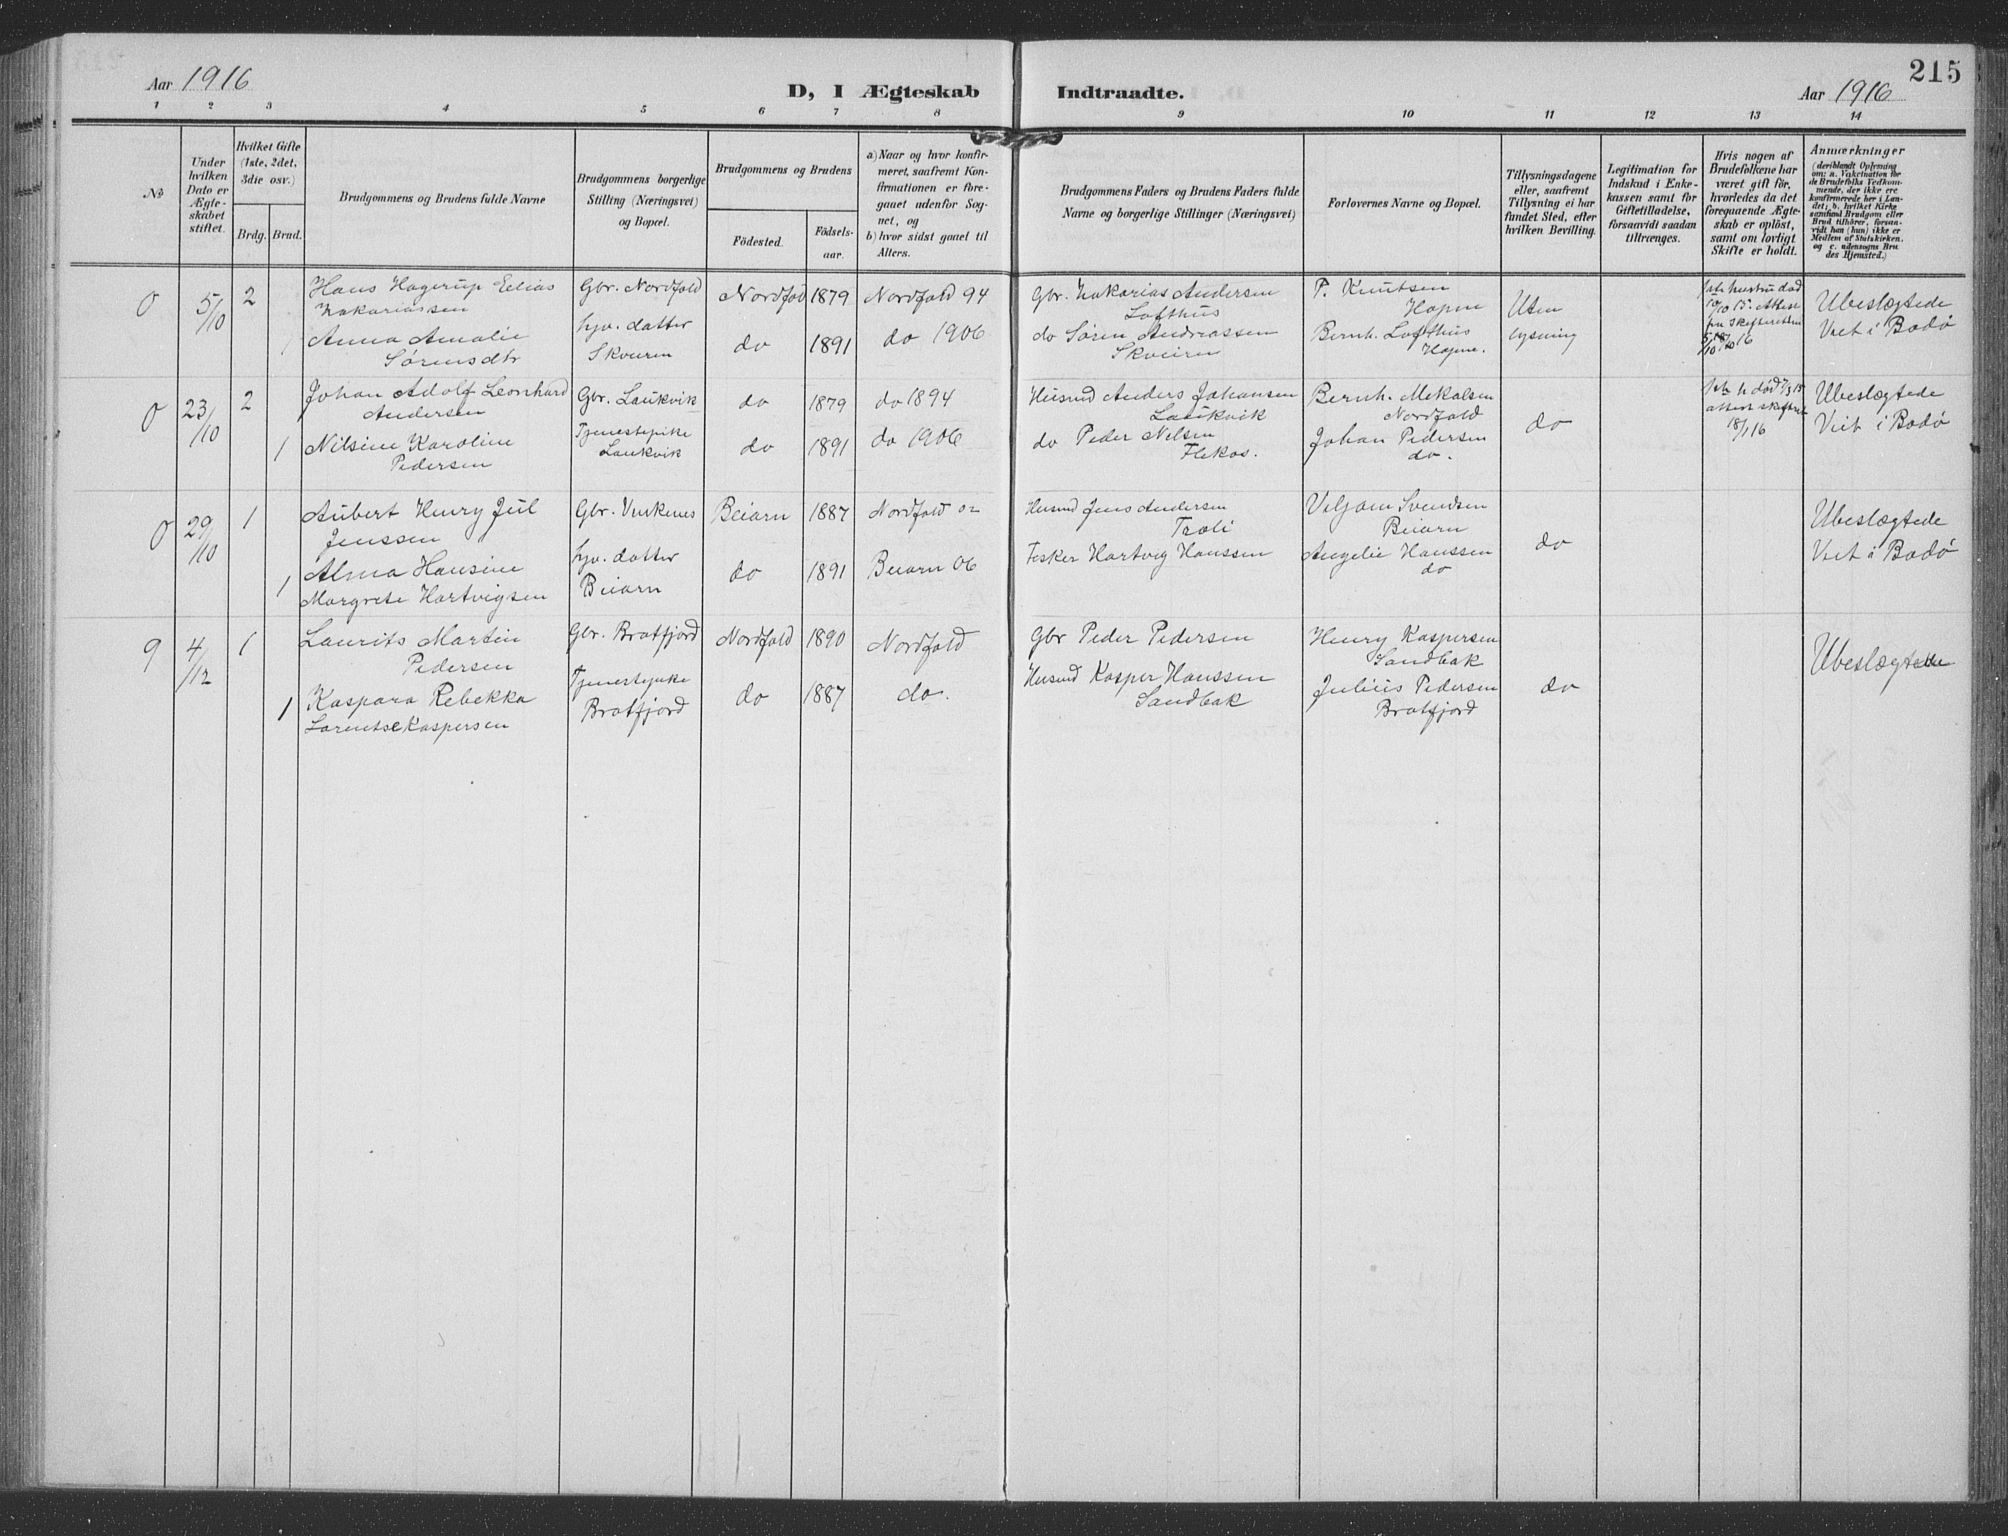 215
Aar 1916
D, I Ægteskab Indtraadte.
Aar 1916
1 2 3 4 5 6 7 8 9 10 11 12 13 14
No
Under
hvilken
Dato er
Ægte-
skabet
stiftet.
Hvilket Gifte
(1ste, 2det,
3die osv.)
Brdg. Brud.
Brudgommens og Brudens fulde Navne
Brudgommens borgerlige
Stilling (Næringsvei)
og Bopæl.
Brudgommens og Brudens
Födested.
Födsels-
aar.
a) Naar og hvor konfir-
meret, saafremt Kon-
firmationen er fore-
gaaet udenfor Sog-
net, og
b) hvor sidst gaaet til
Alters.
Brudgommens Faders og Brudens Faders fulde
Navne og borgerlige Stillinger (Næringsvei)
Forlovernes Navne og Bopæl.
Tillysningsdagene
eller, saafremt
Tillysning ei har
fundet Sted, efter
hvilken Bevilling.
Legitimation for
Indskud i Enke-
kassen samt for
Giftetilladelse,
forsaavidt saadan
tiltrænges.
Hvis nogen af
Brudefolkene har
været gift før,
hvorledes da det
foregaaende Ægte-
skab er oplöst,
samt om lovligt
Skifte er holdt.
Anmærkninger
(deriblandt Oplysning
om: a. Vakcination for
de Brudefolks Vedkom-
mende, der ikke ere
konfirmerede her i Lan-
det; b. hvilket Kirke
samfund Brudgom eller
Brud tilhörer, forsaa-
vidt han (hun) ikke er
Medlem af Statskirken,
og c. udensogns Bru
des Hjemsted.)
0 5/10 2
Hans Hagerup Elias
Zakariassen
Gbr. Nordfold
Nordfold 1879 Nordfold 94
Gbr. Zakarias Andersen
Lofthus
P. Knutsen
Hopen
Uten
lysning
Ubeslægtede
Viet i Bodø
1
Anna Amalie
Sørensdtr
hjv. datter
Skveiren
do 1891 do 1906
do Søren Andreassen
Skveiren
Bernh. Lofthus
Hopen.
0 23/10 2
Johan Adolf Leonhard
Andersen
Gbr. Laukvik
do 1879 do 1894
Husmd Anders Johansen
Laukvik
Bernh. Mekalsen
Nordfold
do
18/1 16
Ubeslægtede
Viet i Bodø
1
Nilsine Karoline
Pedersen
Tjenestepike
Laukvik
do 1891 do 1906
do Peder Nilsen
Flekos.
Johan Pedersen
do.
0 29/10 1
Aubert Henry Jul
Jenssen
Gbr.
Beiarn 1887 Nordfold 02
Husmd Jens Andersen
Viljam Svendsen
Beiarn
do
Ubeslægtede
Viet i Bodø
1
Alma Hansine
Margrete Hartvigsen
hjv. datter
Beiarn
do 1891 Beiarn 06
Fisker Hartvig Hanssen
Angelie Hanssen
do
9 4/12 1
Laurits Martin
Pedersen
Gbr. Bratfjord
Nordfold 1890 Nordfold
Gbr Peder Pedersen
Henry Kaspersen
Sandbak
do
Ubeslægtede
1
Kaspara Rebekka
Lorentse Kaspersen
Tjenestepike
Bratfjord
do 1887 do.
Husmd Kasper Hanssen
Sandbak
Julius Pedersen
Bratfjord